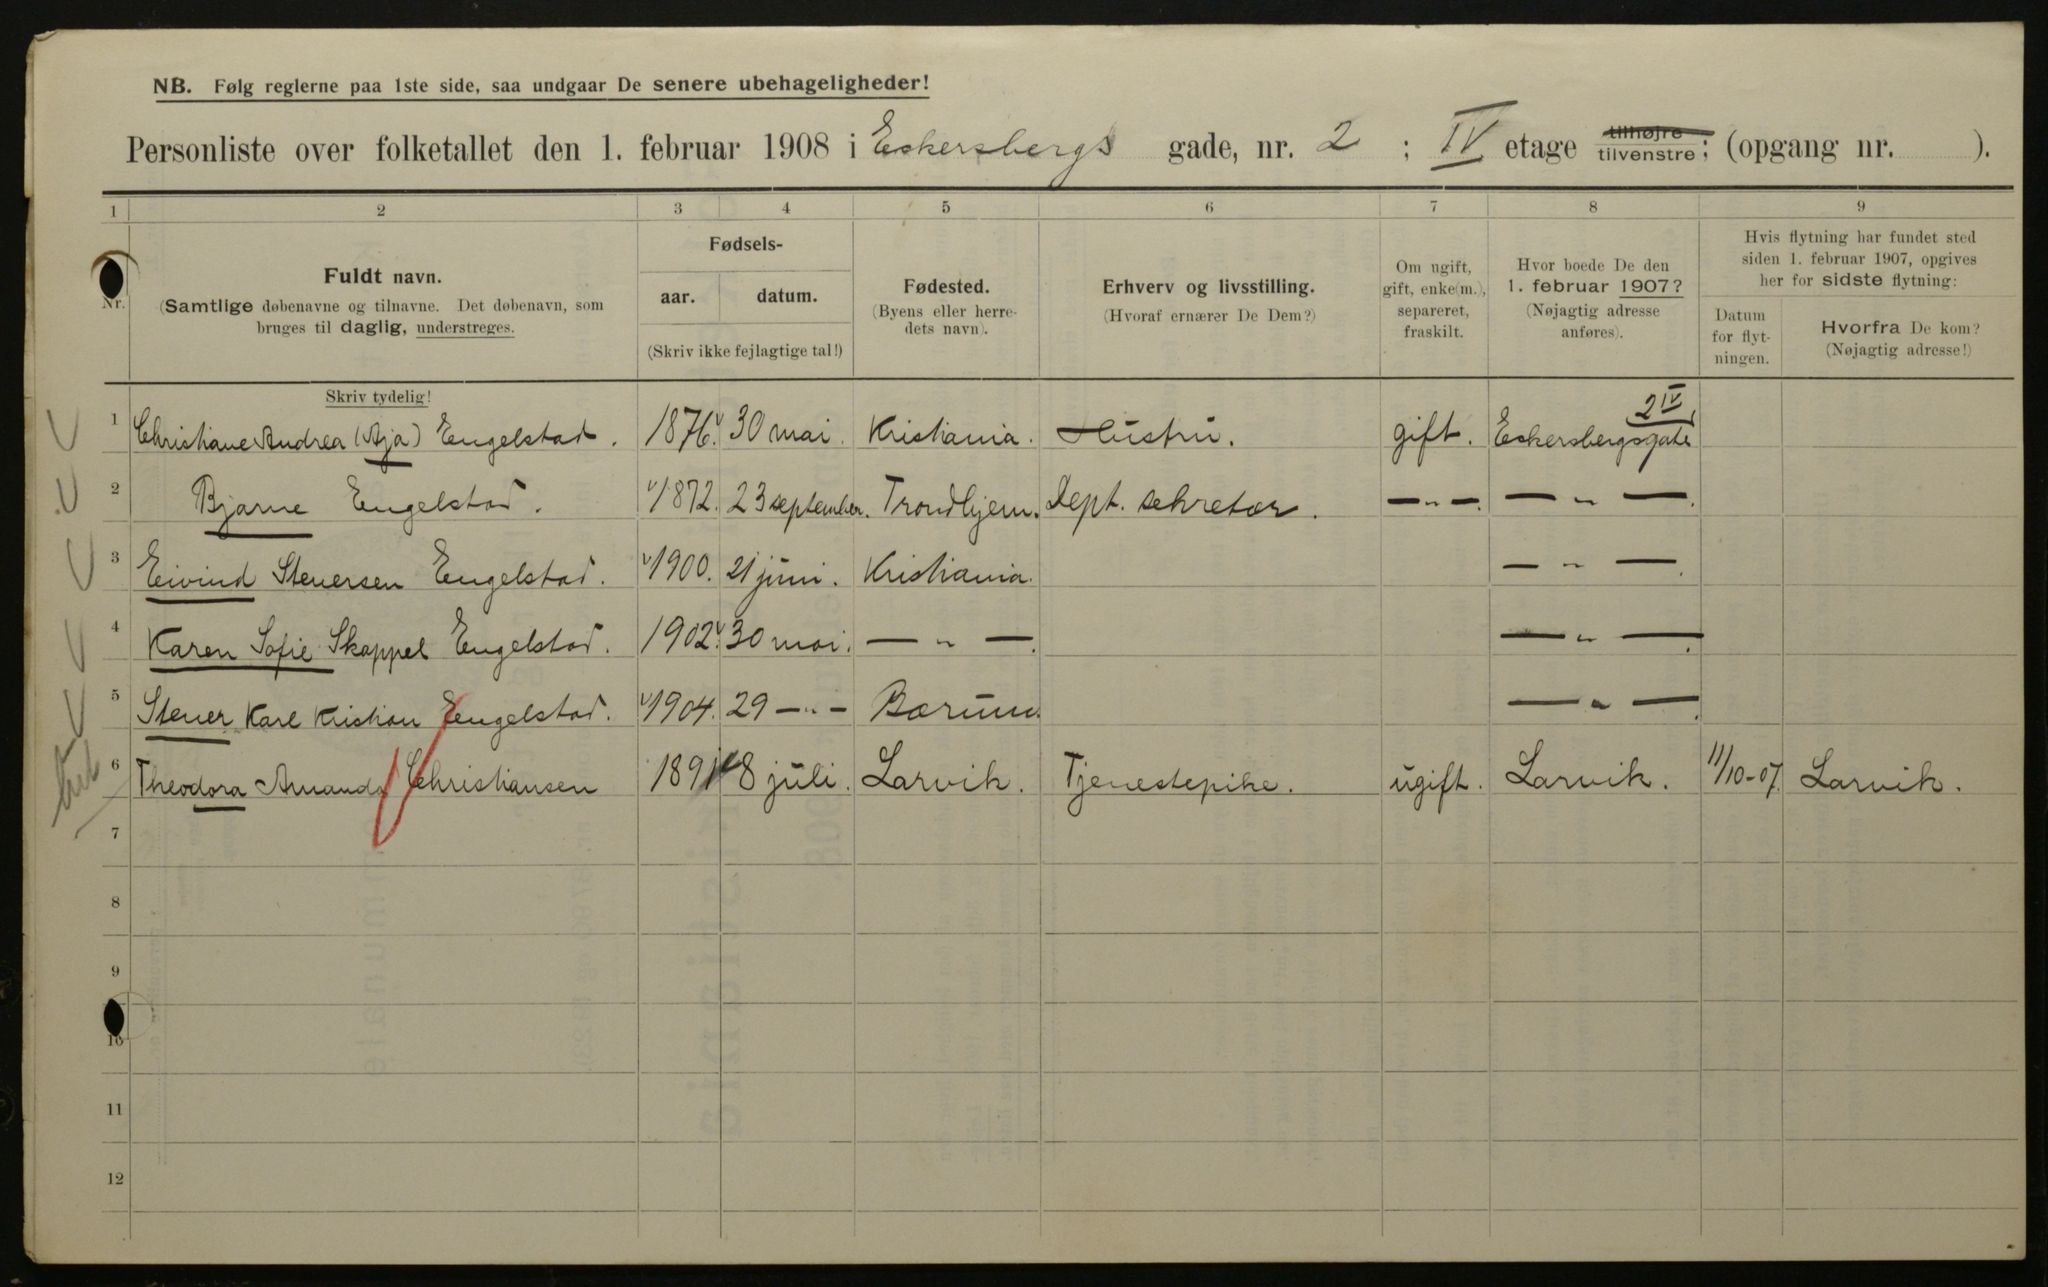 NB. Følg reglerne paa 1ste side, saa undgaar De senere ubehageligheder!
Personliste over folketallet den 1. februar 1908 i Eskersbergs gade, nr. 2 ; IV etage tilhøjre tilvenstre; (opgang nr. ).
1 2 3 4 5 6 7 8 9
Nr.
Fuldt navn.
(Samtlige døbenavne og tilnavne. Det døbenavn, som
bruges til daglig, understreges.
Skriv tydelig!
Fødsels-
aar. datum.
(Skriv ikke fejlagtige tal!)
Fødested.
(Byens eller herre-
dets navn).
Erhverv og livsstilling.
(Hvoraf ernærer De Dem?)
Om ugift,
gift, enke(m.),
separeret,
fraskilt.
Hvor boede De den
1. februar 1907?
(Nøjagtig adresse
anføres).
Hvis flytning har fundet sted
siden 1. februar 1907, opgives
her for sidste flytning:
Datum
for flyt-
ningen.
Hvorfra De kom?
(Nøjagtig adresse!)
2 IV
1 Christiane Andrea (Aja) Engelstad. 1876. 30 mai. Kristiania. Hustru. gift. Eskersbergsgate
2 Bjarne Engelstad. 1872. 23 september. Trondhjem. Dept. sekretær. — „ —. — „ —.
3 Eivind Stenersen Engelstad. 1900. 21 juni. Kristiania. — „ —.
4 Karen Sofie Skappel Engelstad. 1902. 30 mai. — „ —. — „ —.
5 Stener Karl Kristian Engelstad. 1904. 29 — „ — Bærum. — „ —.
6 Theodora Amanda Christiansen 1891 8 juli. Larvik. Tjenestepike. ugift. Larvik. 11/10-07. Larvik.
7
8
9
10
11
12